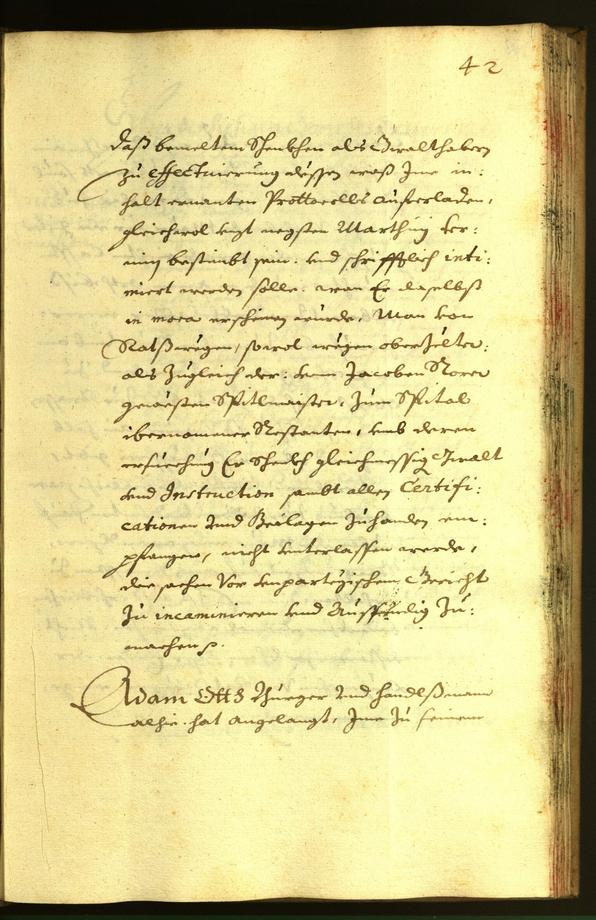 42
daß bemeltem Schenkhen als Gwalthabern
zu effectuierung dessen waß Ime in:
halt ernanten Prottocolls auferladen,
gleichwol negsten Marthiny ter:
miny bestimbt sein: und schrifftlich inti:
miert werden solle: wan Er daselbß
in mora erscheinen wurde, Man von
Ratßwegen, sowol wegen oberzelter:
als Zugleich der: dem Jacoben Storer
gewesten Spitlmaister, Zum Spital
ibernommner Restanten, umb deren
ersuechung Er Schenkh gleichmessig Gwalt
und Instruction sambt allen Certifi:
cationen und Beilagen Zuhanden em:
pfangen, nicht underlassen werde,
die sachen vor unpartheyischem Gericht
Zu incaminieren und Ausfündig Zu:
machen p.
Adam Ott Burger und handelßmann
alhie hat angelangt, Ime Zu seinem